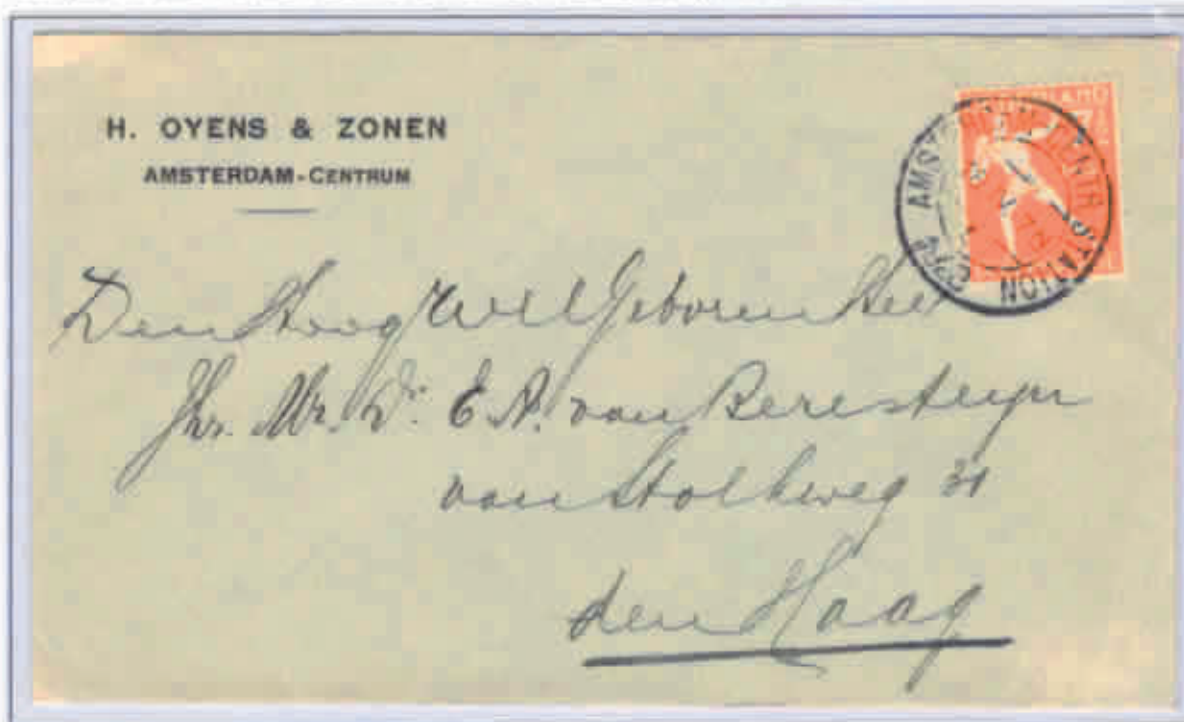 H. OYENS & ZONEN
AMSTERDAM-CENTRUM
AMSTERDAM CENTR. STATION
Den Hoog Wel Geboren Heer
Jhr. Mr. Dr. E. A. van Beresteyn
van Stolkweg 31
den Haag